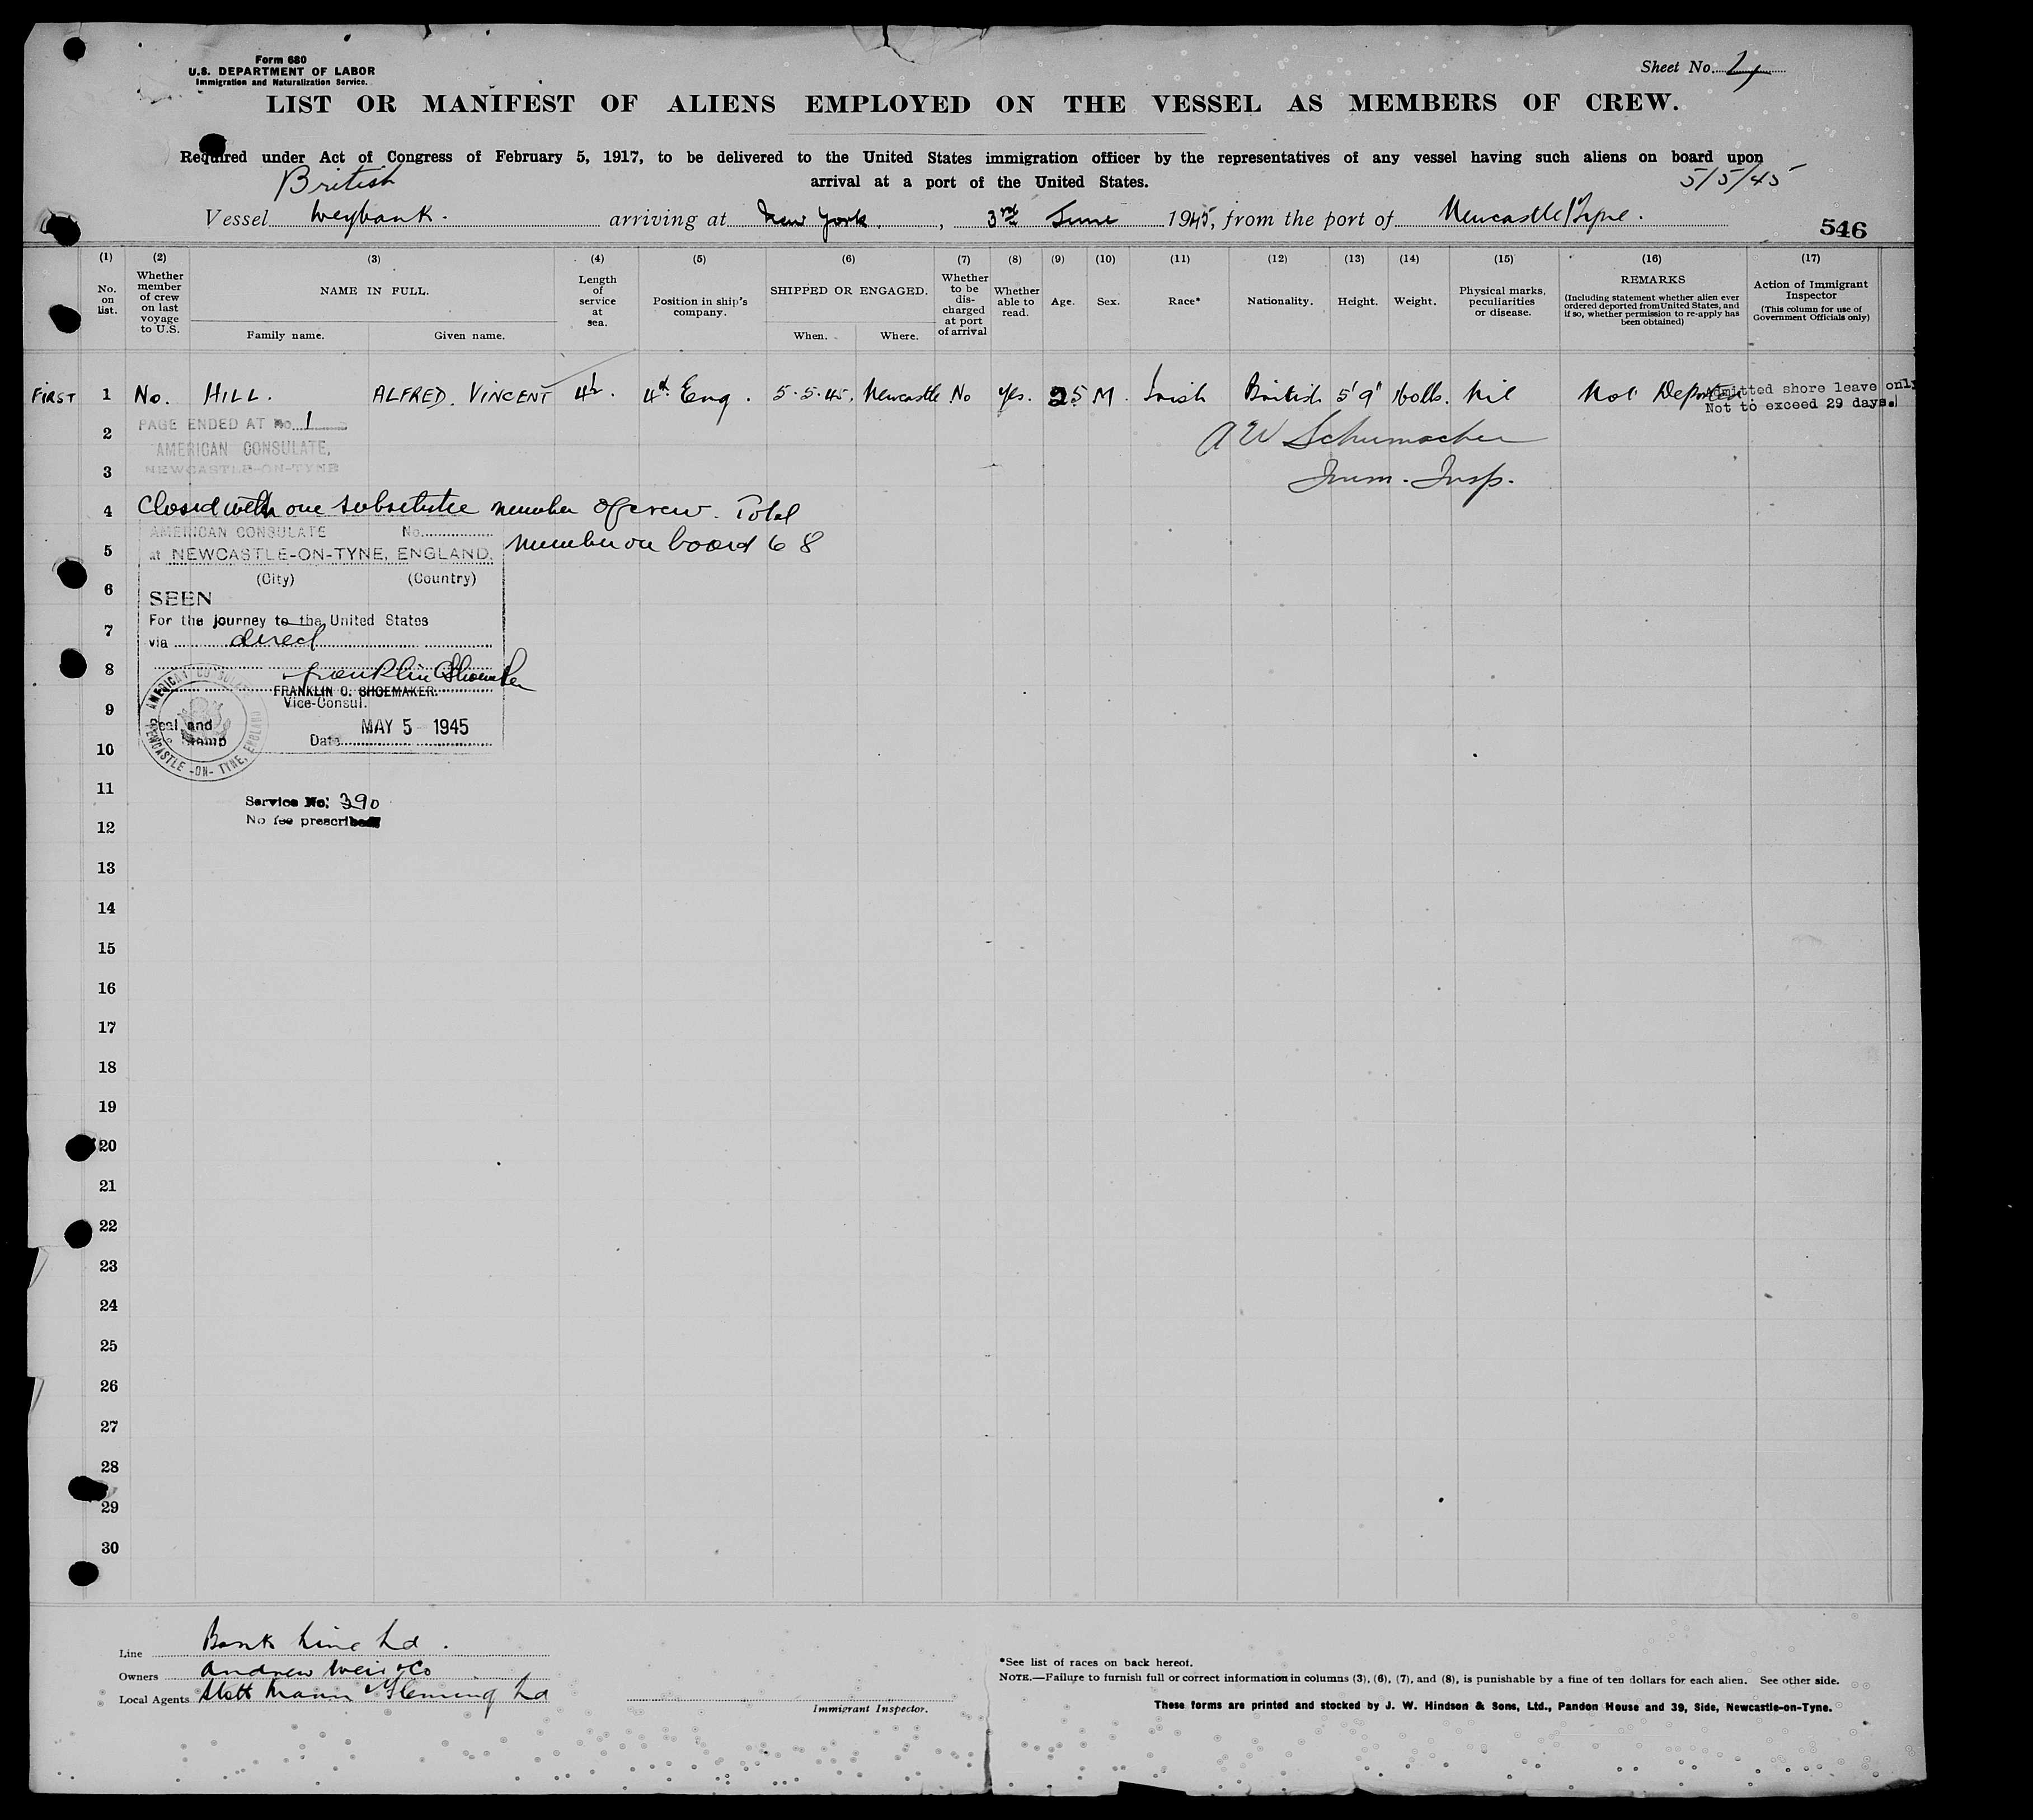 Form 680
U.S. DEPARTMENT OF LABOR
Immigration and Naturalization Service.
Sheet No. 4
LIST OR MANIFEST OF ALIENS EMPLOYED ON THE VESSEL AS MEMBERS OF CREW.
Required under Act of Congress of February 5, 1917, to be delivered to the United States immigration officer by the representatives of any vessel having such aliens on board upon
arrival at a port of the United States.
British
5/5/45
Vessel Weybank. arriving at New York, 3rd June 1945, from the port of Newcastle/Tyne.
546
(1) No. on list.
(2) Whether member of crew on last voyage to U.S.
(3) NAME IN FULL. Family name. Given name.
(4) Length of service at sea.
(5) Position in ship's company.
(6) SHIPPED OR ENGAGED. When. Where.
(7) Whether to be dis-charged at port of arrival
(8) Whether able to read.
(9) Age.
(10) Sex.
(11) Race*
(12) Nationality.
(13) Height.
(14) Weight.
(15) Physical marks, peculiarities or disease.
(16) REMARKS (Including statement whether alien ever ordered deported from United States, and if so, whether permission to re-apply has been obtained)
(17) Action of Immigrant Inspector (This column for use of Government Officials only)
FIRST 1 No. HILL. ALFRED. VINCENT 4th Eng. 5.5.45. Newcastle No Yes. 25 M. Irish British 5'9" Nil Not Deported. Admitted shore leave only
Not to exceed 29 days.
2 PAGE ENDED AT No. 1
A W Schumacher
AMERICAN CONSULATE,
3 NEWCASTLE-ON-TYNE
Imm. Insp.
4 Closed with one substitute member of crew. Total
number on board 68
AMERICAN CONSULATE No.
5 at NEWCASTLE-ON-TYNE, ENGLAND.
(City) (Country)
6 SEEN
For the journey to the United States
7 via direct
8 Franklin O Shoemaker
FRANKLIN O. SHOEMAKER.
9 Vice-Consul.
AMERICAN CONSULATE NEWCASTLE-ON-TYNE, ENGLAND
Seal and Stamp
10 Date MAY 5 1945
11 Service No. 390
12 No fee prescribed
13
14
15
16
17
18
19
20
21
22
23
24
25
26
27
28
29
30
Line Bank Line Ld.
Owners Andrew Weir & Co
Local Agents Stott Mann & Fleming Ld
Immigrant Inspector.
*See list of races on back hereof.
NOTE.—Failure to furnish full or correct information in columns (3), (6), (7), and (8), is punishable by a fine of ten dollars for each alien. See other side.
These forms are printed and stocked by J. W. Hindson & Sons, Ltd., Pandon House and 39, Side, Newcastle-on-Tyne.